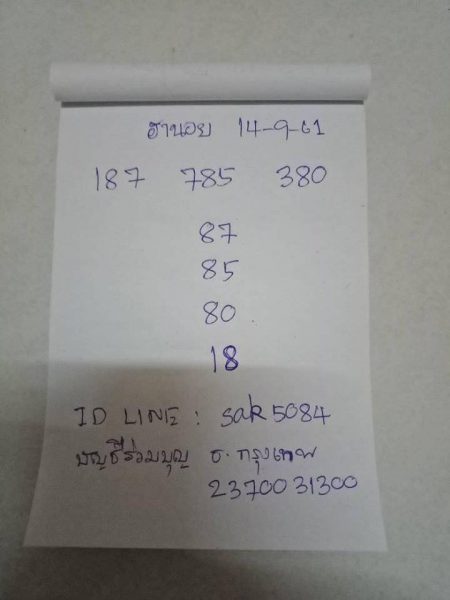 ฮานอย 14-9-61
187 785 380
87
85
80
18
ID LINE : sak5084
บัญชีร่วมบุญ ธ.กรุงเทพ
2370031300